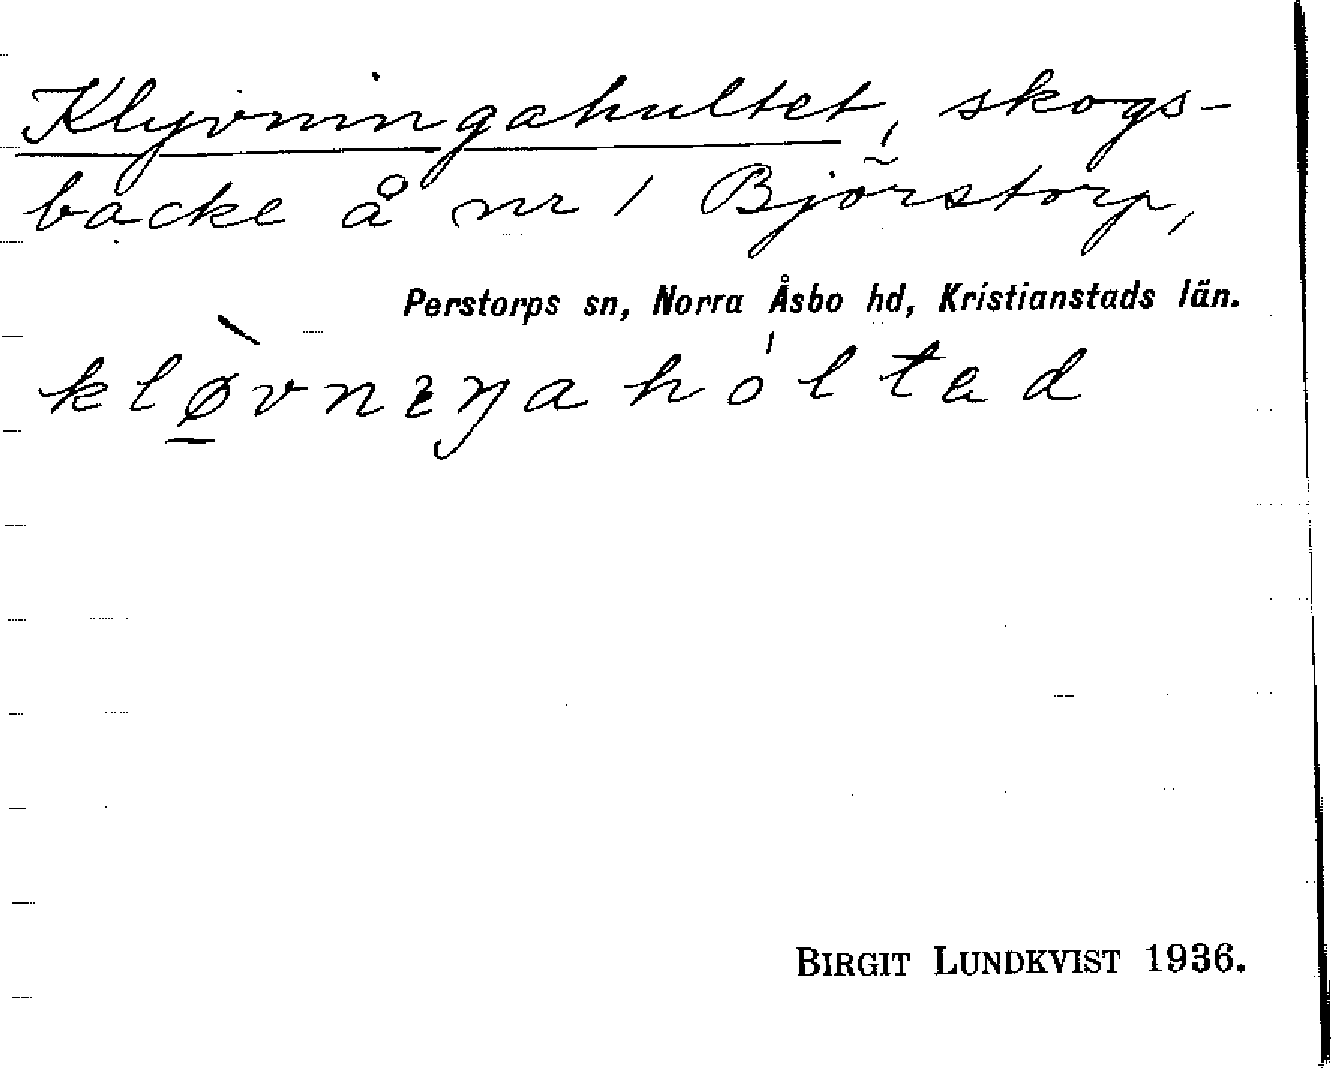 Klyvningahultet, skogs-
backe å nr 1 Björstorp,
Perstorps sn, Norra Åsbo hd, Kristianstads län.
klø̱̀vnıŋahó́ltad
BIRGIT LUNDKVIST 1936.